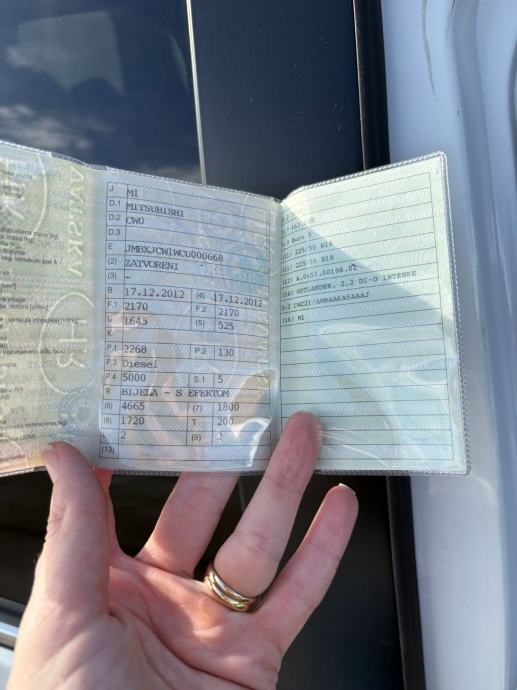 J M1
D.1 MITSUBISHI
D.2 CW0
D.3
E JMBXJCW1WCU000668
(2) ZATVORENI -
(3) -
B 17.12.2012 (4) 17.12.2012
F.1 2170 F.2 2170
G 1645 (5) 525
K
P.1 2268 P.2 130
P.3 Diesel
P.4 5000 S.1 5
R BIJELA - S EFEKTOM
(6) 4665 (7) 1800
(8) 1720 T 200
2 (9) 2
(13)
Euro 5
225/55 R18
225/55 R18
A.0457.00196.01
(14) OUTLANDER, 2,2 DI-D INTENSE
D.2 CW221/AMBAA6A5AAAJ
(16) M1
HR